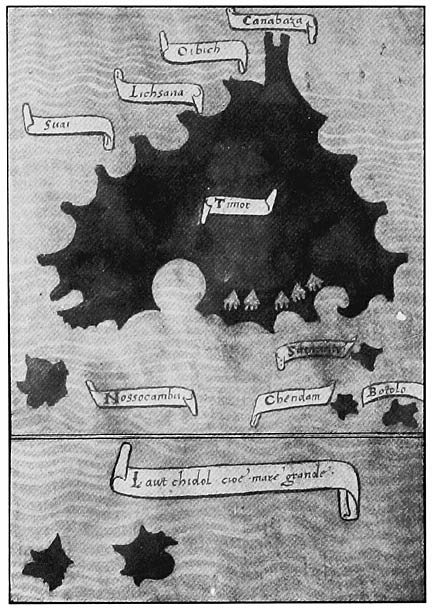 Canabaza
Oibich
Lichsana
Suai
Timor
Nossocambu
Chendam
Botolo
Laut chidol cioe' mare' grande'.